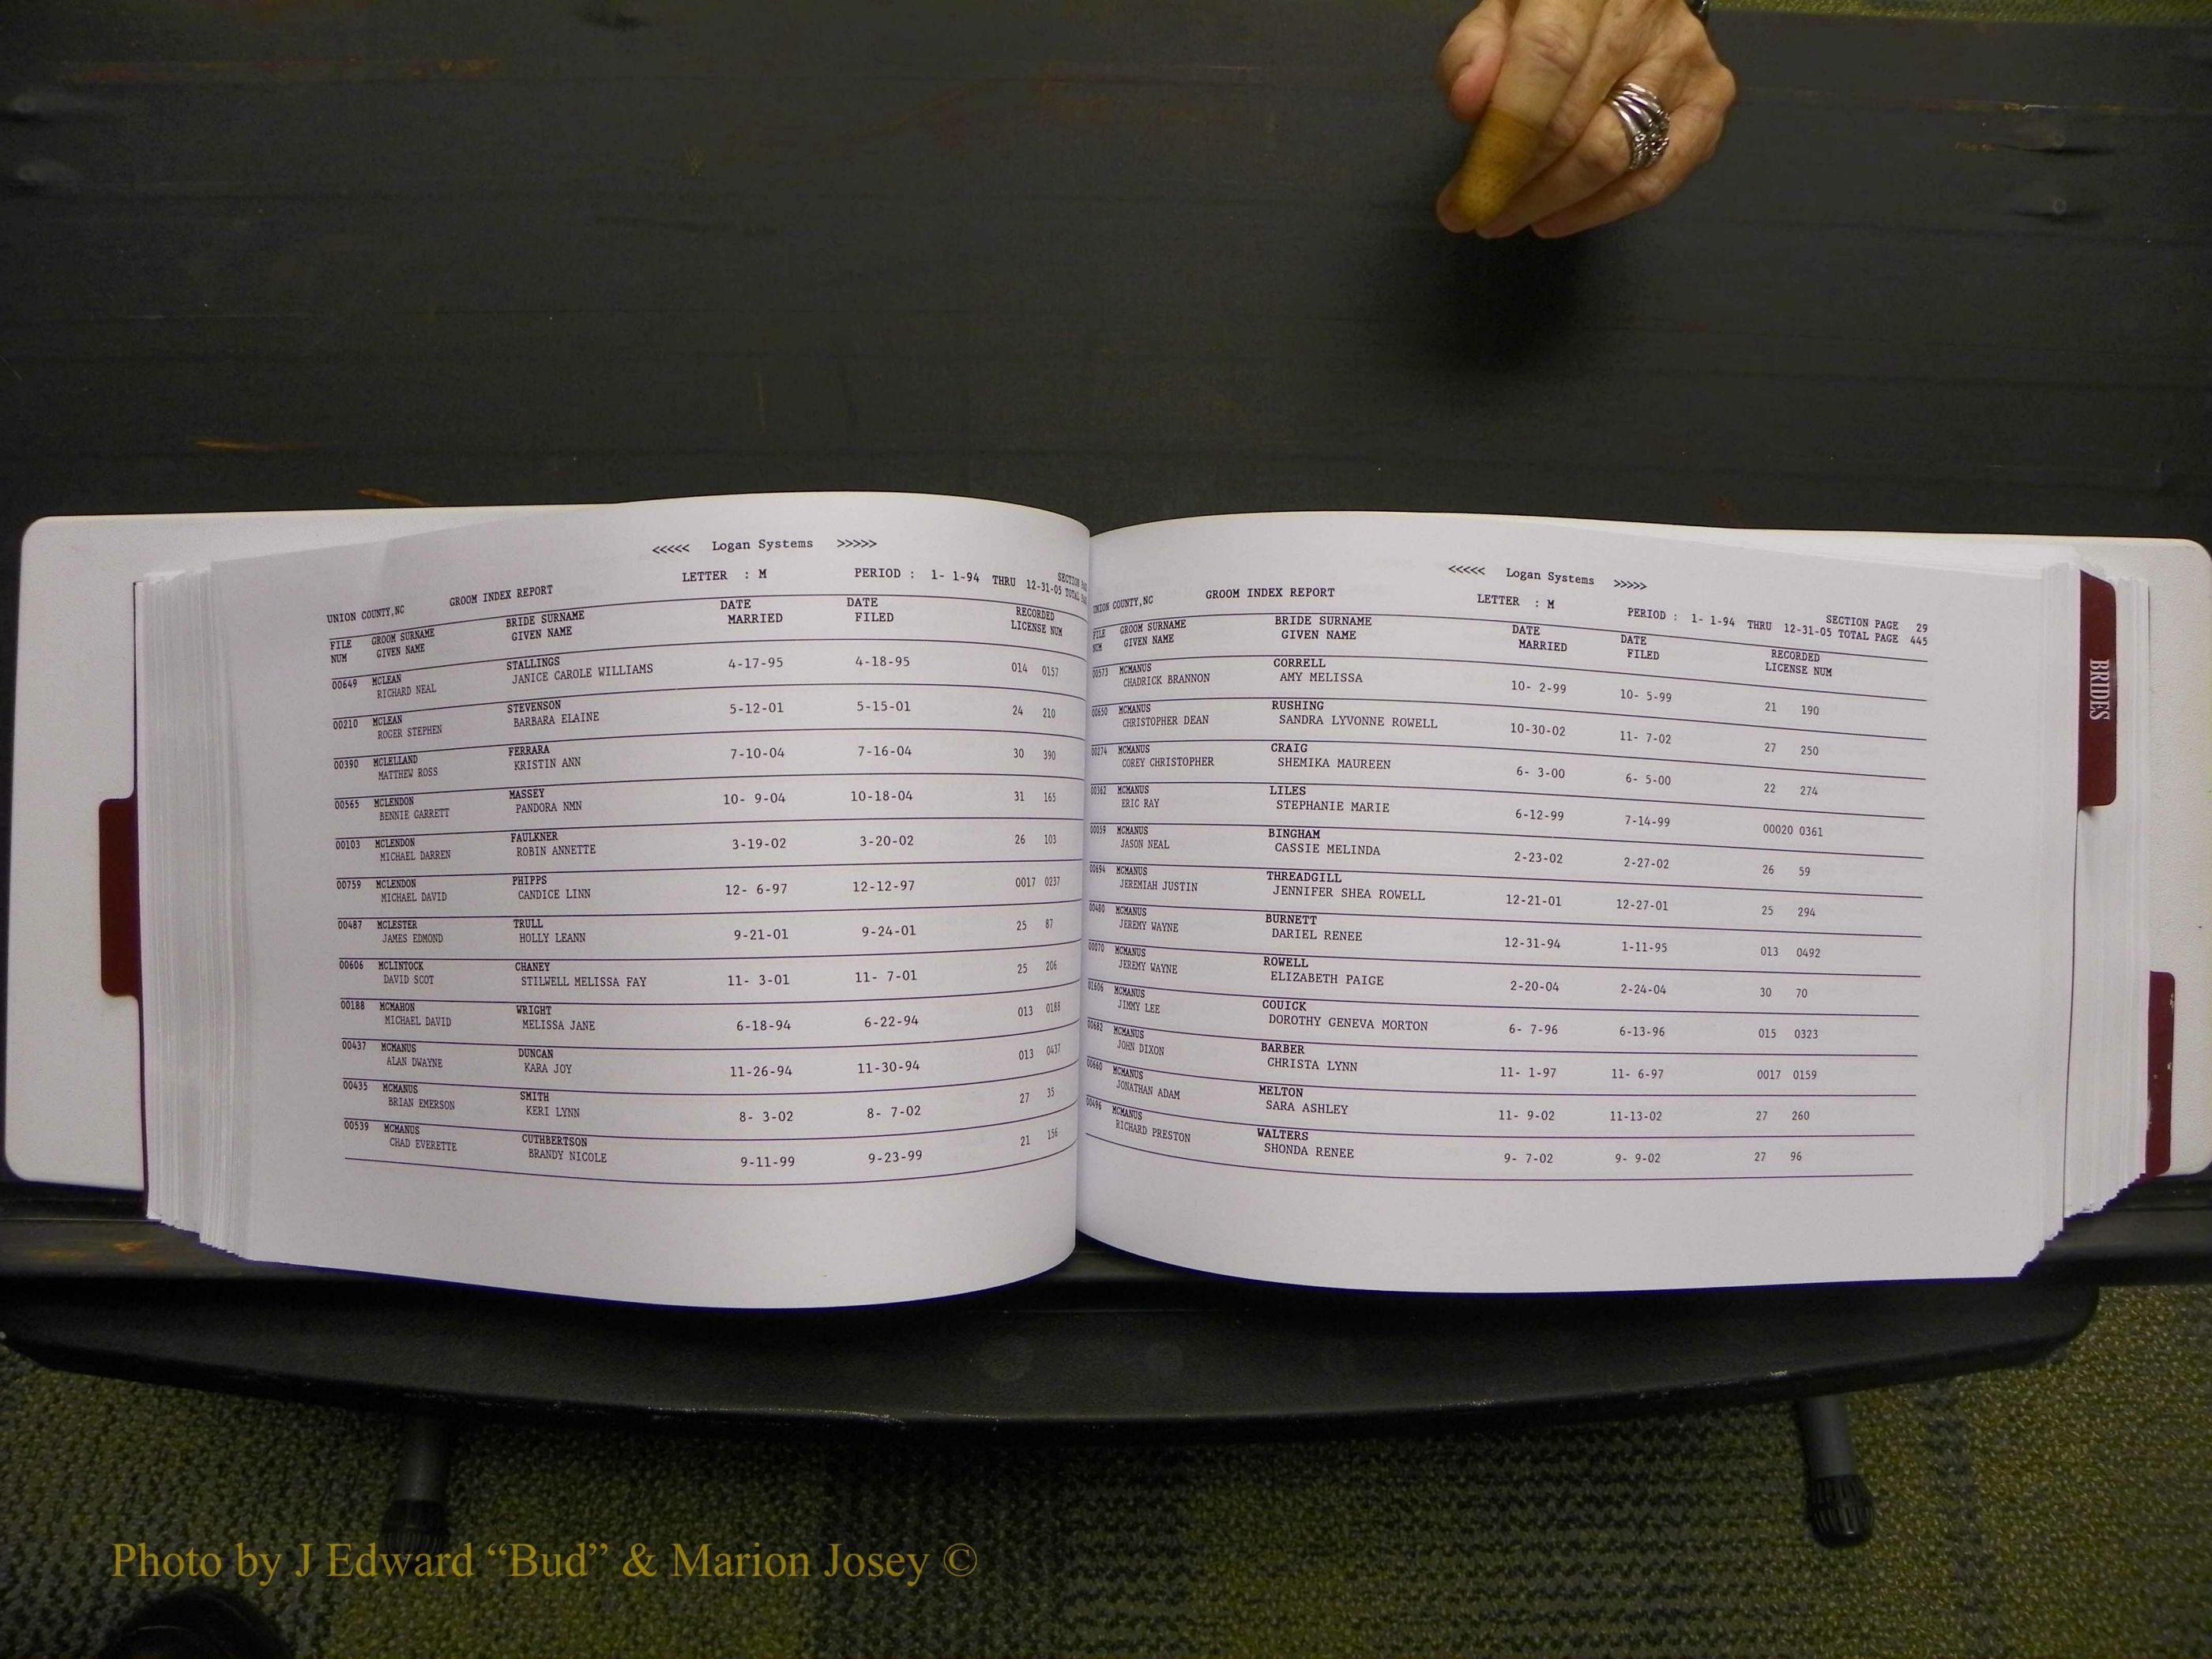 <<<<< Logan Systems >>>>>
LETTER : M PERIOD : 1- 1-94 THRU 12-31-05
UNION COUNTY,NC GROOM INDEX REPORT SECTION TOTAL
FILE NUM GROOM SURNAME GIVEN NAME BRIDE SURNAME GIVEN NAME DATE MARRIED DATE FILED RECORDED LICENSE NUM
00649 MCLEAN STALLINGS 4-17-95 4-18-95 014 0157
RICHARD NEAL JANICE CAROLE WILLIAMS
00210 MCLEAN STEVENSON 5-12-01 5-15-01 24 210
ROGER STEPHEN BARBARA ELAINE
00390 MCLELLAND FERRARA 7-10-04 7-16-04 30 390
MATTHEW ROSS KRISTIN ANN
00565 MCLENDON MASSEY 10- 9-04 10-18-04 31 165
BENNIE GARRETT PANDORA NMN
00103 MCLENDON FAULKNER 3-19-02 3-20-02 26 103
MICHAEL DARREN ROBIN ANNETTE
00759 MCLENDON PHIPPS 12- 6-97 12-12-97 0017 0237
MICHAEL DAVID CANDICE LINN
00487 MCLESTER TRULL 9-21-01 9-24-01 25 87
JAMES EDMOND HOLLY LEANN
00606 MCLINTOCK CHANEY 11- 3-01 11- 7-01 25 206
DAVID SCOT STILWELL MELISSA FAY
00188 MCMAHON WRIGHT 6-18-94 6-22-94 013 0188
MICHAEL DAVID MELISSA JANE
00437 MCMANUS DUNCAN 11-26-94 11-30-94 013 0437
ALAN DWAYNE KARA JOY
00435 MCMANUS SMITH 8- 3-02 8- 7-02 27 35
BRIAN EMERSON KERI LYNN
00539 MCMANUS CUTHBERTSON 9-11-99 9-23-99 21 156
CHAD EVERETTE BRANDY NICOLE
<<<<< Logan Systems >>>>>
LETTER : M PERIOD : 1- 1-94 THRU 12-31-05 TOTAL PAGE 445
UNION COUNTY,NC GROOM INDEX REPORT SECTION PAGE 29
FILE NUM GROOM SURNAME GIVEN NAME BRIDE SURNAME GIVEN NAME DATE MARRIED DATE FILED RECORDED LICENSE NUM
00573 MCMANUS CORRELL 10- 2-99 10- 5-99 21 190
CHADRICK BRANNON AMY MELISSA
00650 MCMANUS RUSHING 10-30-02 11- 7-02 27 250
CHRISTOPHER DEAN SANDRA LYVONNE ROWELL
00274 MCMANUS CRAIG 6- 3-00 6- 5-00 22 274
COREY CHRISTOPHER SHEMIKA MAUREEN
00362 MCMANUS LILES 6-12-99 7-14-99 00020 0361
ERIC RAY STEPHANIE MARIE
00059 MCMANUS BINGHAM 2-23-02 2-27-02 26 59
JASON NEAL CASSIE MELINDA
00694 MCMANUS THREADGILL 12-21-01 12-27-01 25 294
JEREMIAH JUSTIN JENNIFER SHEA ROWELL
00480 MCMANUS BURNETT 12-31-94 1-11-95 013 0492
JEREMY WAYNE DARIEL RENEE
00070 MCMANUS ROWELL 2-20-04 2-24-04 30 70
JEREMY WAYNE ELIZABETH PAIGE
01606 MCMANUS COUICK 6- 7-96 6-13-96 015 0323
JIMMY LEE DOROTHY GENEVA MORTON
00682 MCMANUS BARBER 11- 1-97 11- 6-97 0017 0159
JOHN DIXON CHRISTA LYNN
00660 MCMANUS MELTON 11- 9-02 11-13-02 27 260
JONATHAN ADAM SARA ASHLEY
00496 MCMANUS WALTERS 9- 7-02 9- 9-02 27 96
RICHARD PRESTON SHONDA RENEE
BRIDES
Photo by J Edward “Bud” & Marion Josey ©